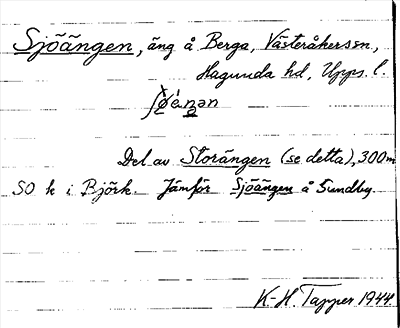 Sjöängen, äng å Berga, Västeråkerssn.,
Hagunda hd, Upps. l.
Del av Storängen (se detta), 300 m
SO k i Björk. Jämför Sjöängen å Sundby.
K-H. Tapper 1944